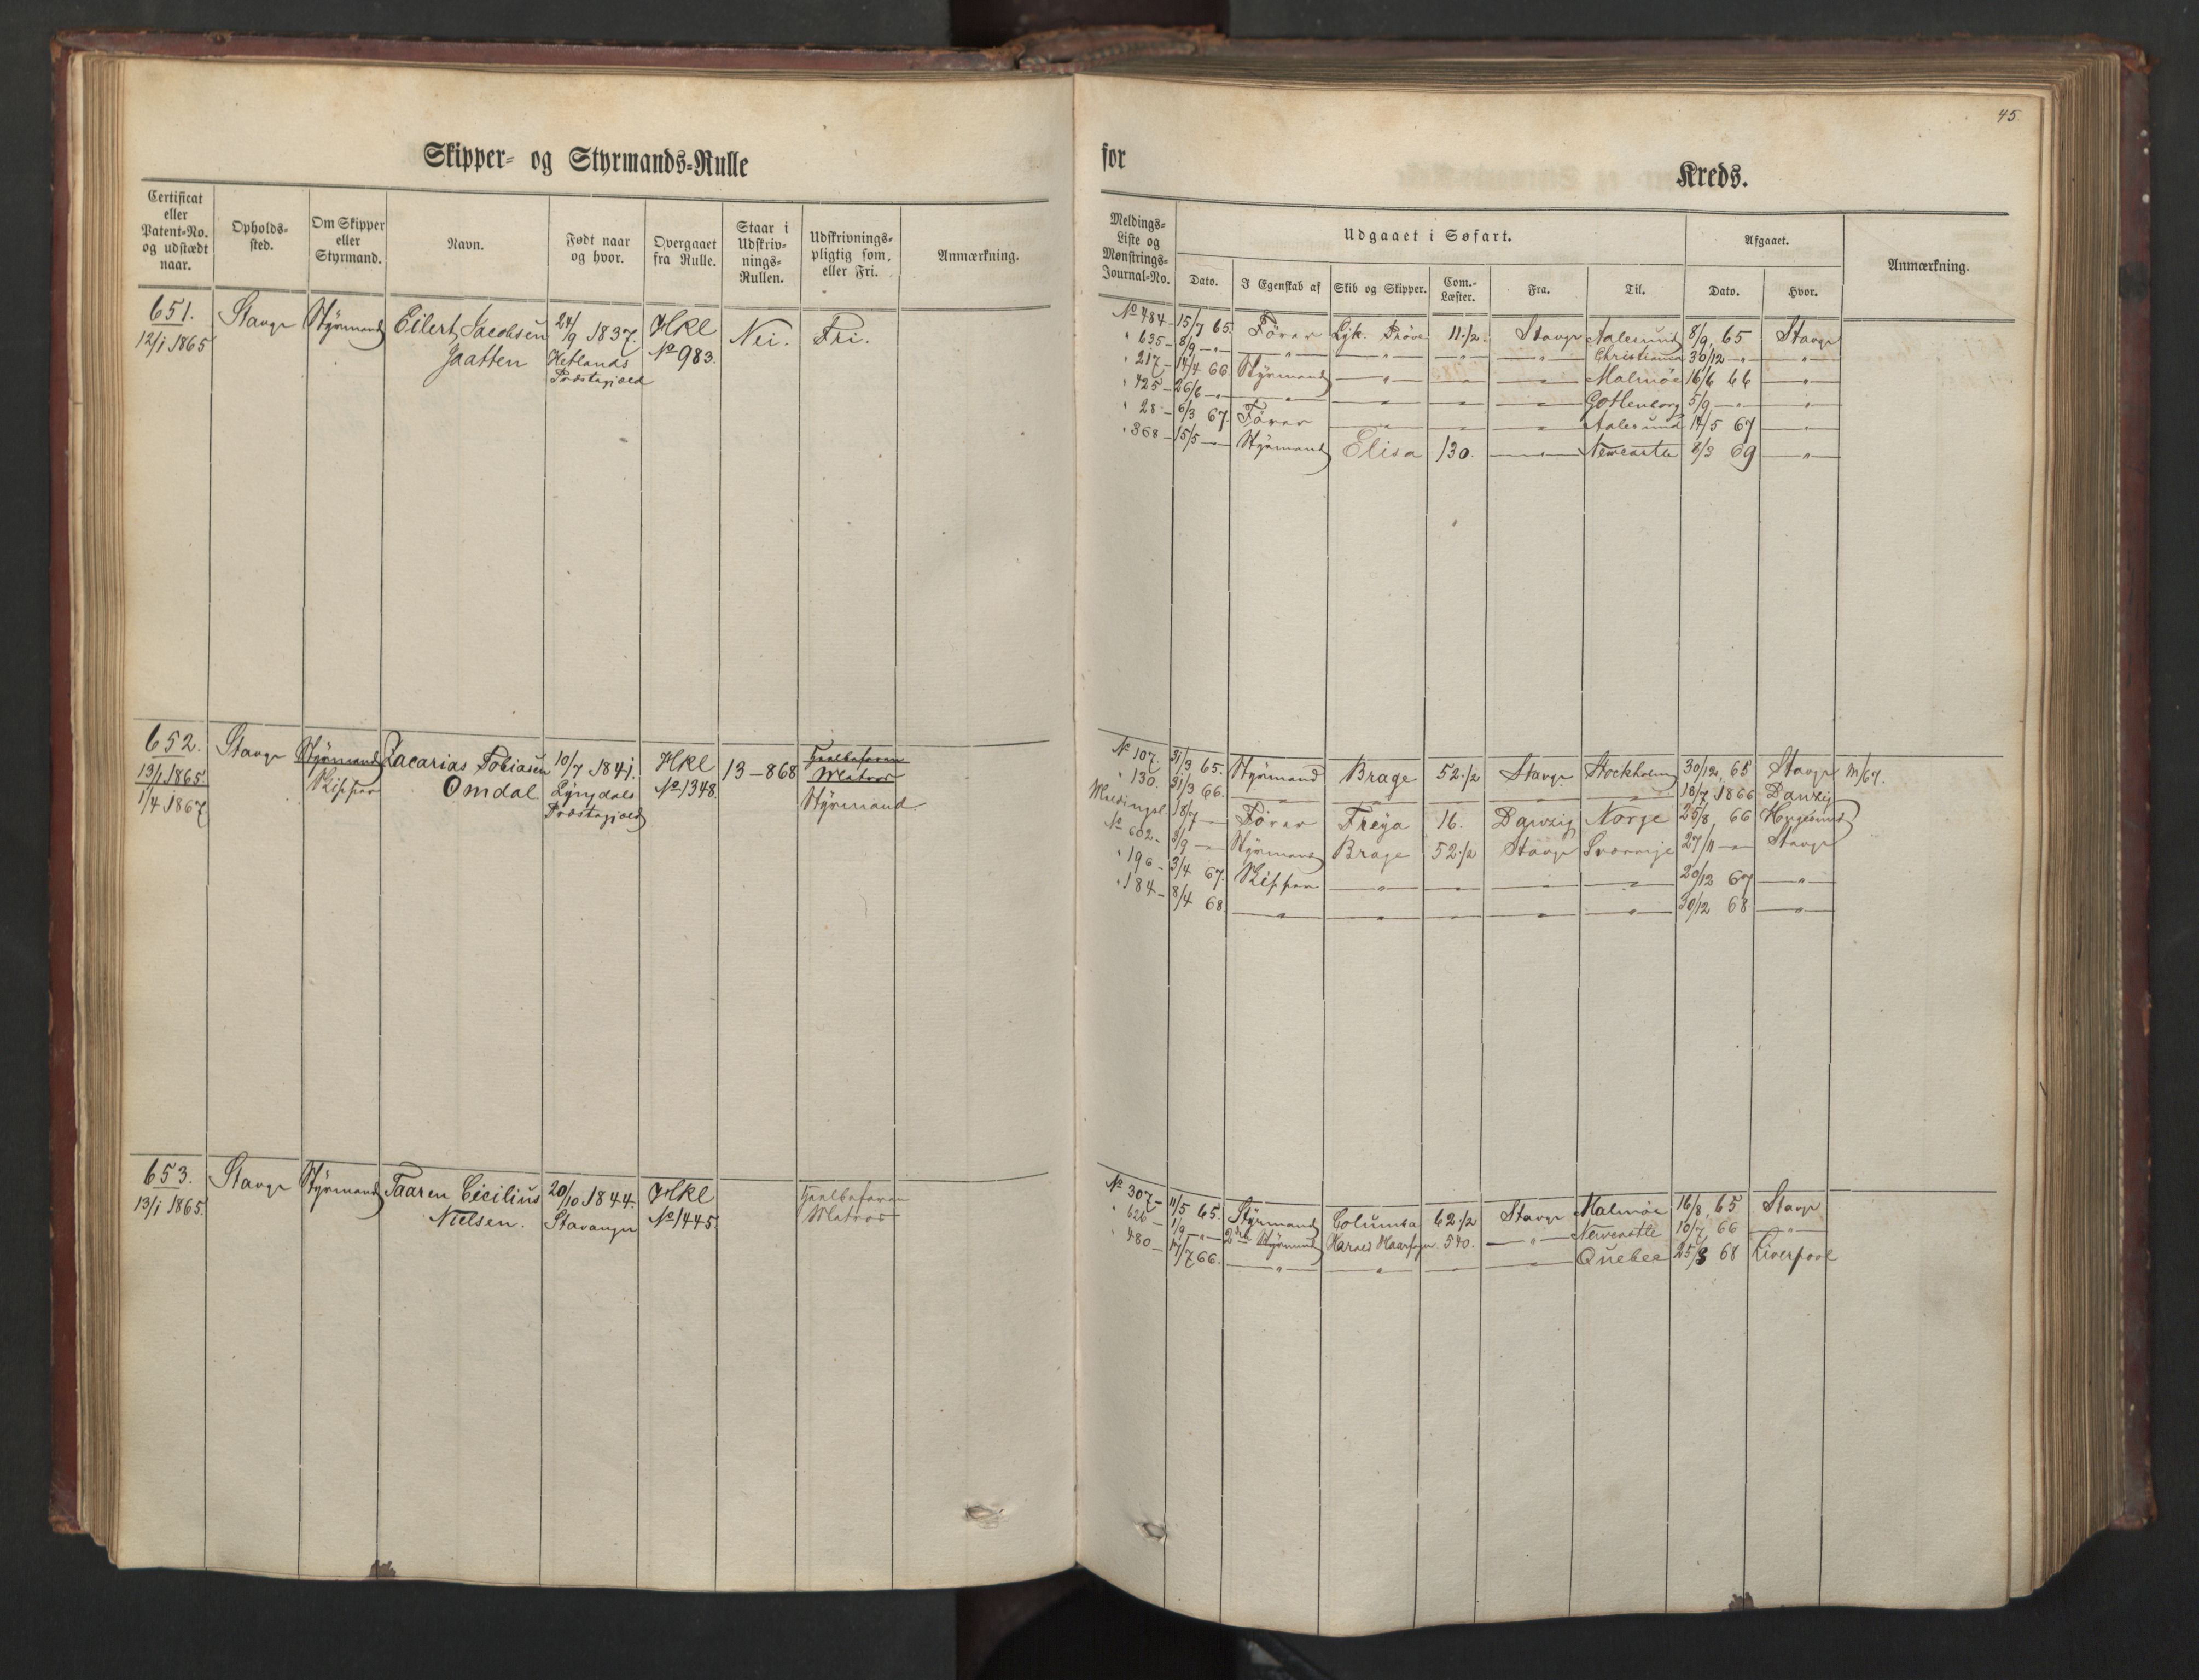 45.
Skipper- og Styrmands-Rulle
for Kreds.
Certificat eller Patent-No. og udstædt naar.
Opholds-sted.
Om Skipper eller Styrmand.
Navn.
Født naar og hvor.
Overgaaet fra Rulle.
Staar i Udskriv-nings-Rullen.
Udskrivnings-pligtig som, eller Fri.
Anmærkning.
Meldings-Liste og Mønstrings-Journal-No.
Udgaaet i Søfart.
Dato.
I Egenskab af
Skib og Skipper.
Com.-Læster.
Fra.
Til.
Afgaaet.
Dato.
Hvor.
Anmærkning.
651. Stavgr Styrmand Eilert Jacobsen 24/9 1837. Hkl Nei. Fri.
12/1 1865 Jaatten Hetlands № 983.
Præstegjeld
№ 484 - 15/7 65. Fører Lgk. Prøve 11 1/2. Stavgr Aalesund 8/9, 65 Stavgr
" 635 - 8/9 - " - " " " " Christiania 30/12 - " "
" 217 - 14/4 66 Styrmand " " " Malmøe 16/6 66 "
" 425 - 26/6 - " - " " " " Gottenborg 5/9 - " "
" 28 - 6/3 67. Fører " " " Aalesund 14/5 67 "
" 368 - 15/5 - Styrmand Elisa 130. " Newcastle 8/3 69 "
652. Stavgr Styrmand Zacarias Tobiasen 10/7 1841. Hkl 13-868 Fuldbefaren
13/1 1865 Skipper Omdal Lyngdals № 1348. Matros
1/4 1867 Præstegjeld Styrmand
№ 107. 31/3 65. Styrmand Brage 52 1/2 Stavgr Stockholm 30/12, 65 Stavgr
" 130. 21/3 66. " " " " " 18/7 1866 Danzig
Meldingsl. 18/7 - Fører Freya 16. Danzig Norge 25/8, 66
№ 602 - 3/9 - " - Styrmand Brage 52 1/2 Stavgr 27/11 - " - Stavgr
" 196 - 3/4 67. Skipper " " " " 20/12 67 "
" 184 - 8/4 68. " " " " " 30/12 68 "
653. Stavgr Styrmand Taaren Cicilius 20/10 1844. Hkl
13/1 1865. Nielsen. Stavanger № 1445. Matros
№ 307 - 11/5 65. Styrmand Columba 62 1/2 Stavgr Malmøe 16/8, 65 Stavgr
" 626 - 1/9 - " - 2den Styrmand Harald Haarfagr 540. " Newcastle 10/7 66 "
" 480 - 17/7 66. " " " " Quebec 25/8 68 Liverpool